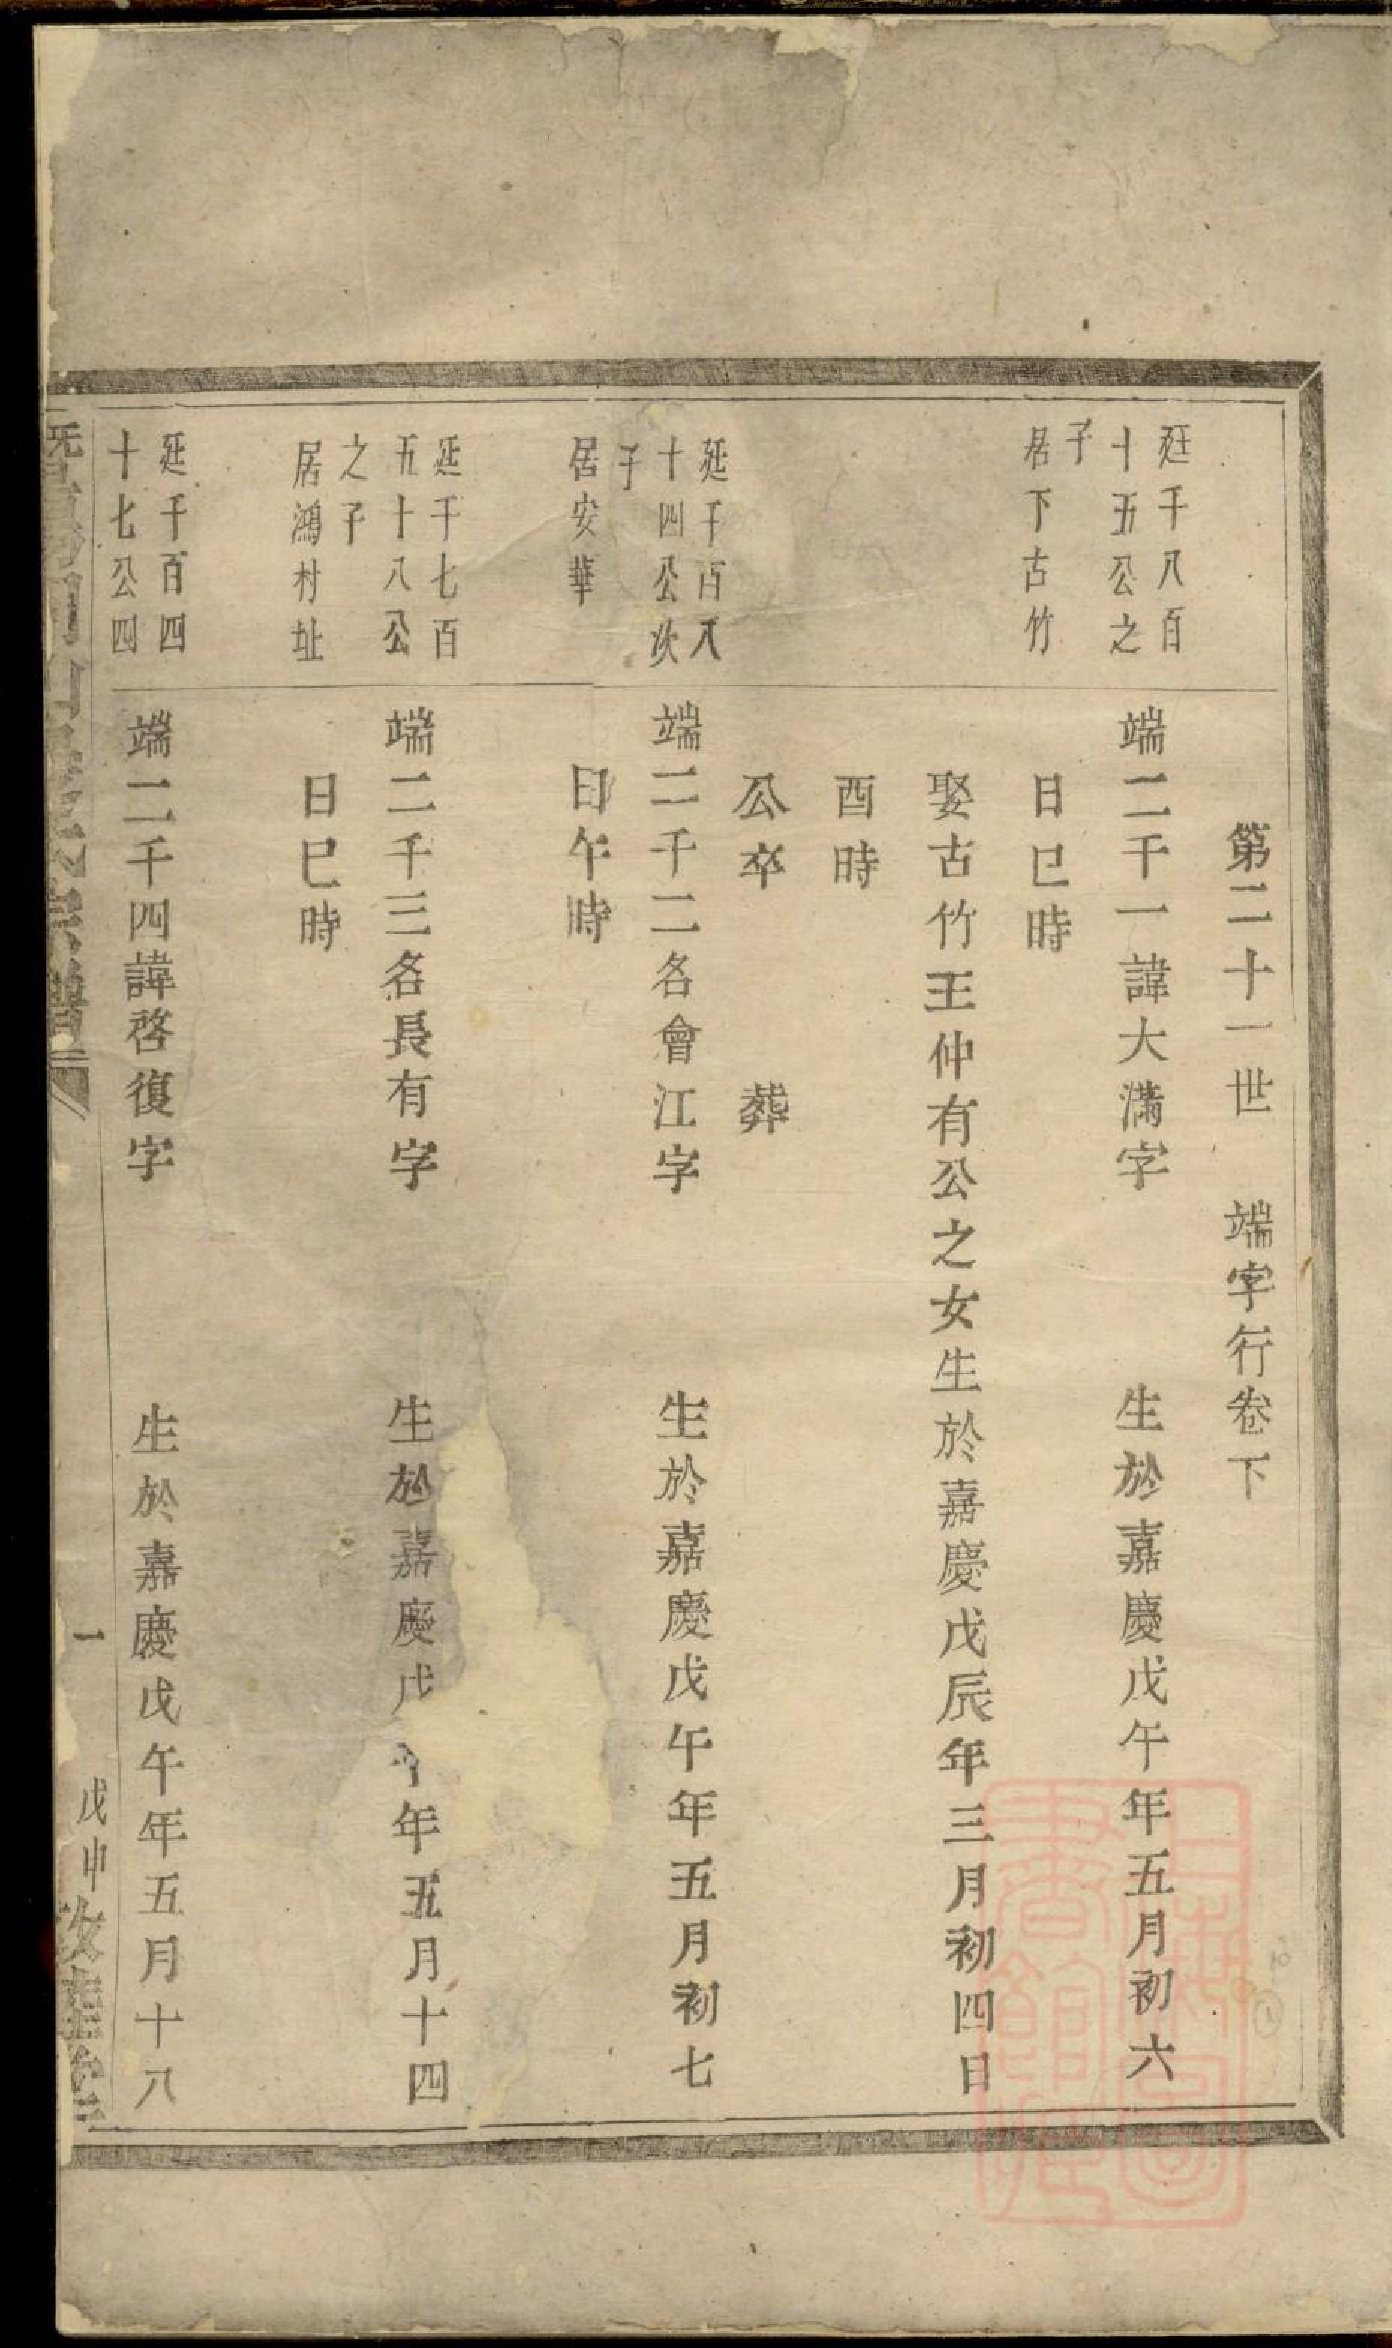 第二十一世　端字行卷下
廷千八百
十五公之
子
居下古竹
端二千一諱大滿字　生於嘉慶戊午年五月初六
日巳時
娶古竹王仲有公之女生於嘉慶戊辰年三月初四日
酉時
公卒　葬
廷千百八
十四公次
子
居安華
端二千二名會江字　生於嘉慶戊午年五月初七
日午時
廷千七百
五十八公
之子
居鴻村址
端二千三名長有字　生於嘉慶戊午年五月十四
日巳時
廷千百四
十七公四
端二千四諱啓復字　生於嘉慶戊午年五月十八
宗譜
一
戊申
上海圖
書館藏